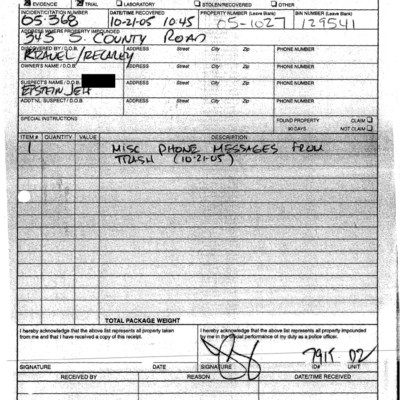 EVIDENCE TRIAL LABORATORY STOLEN/RECOVERED OTHER
INCIDENT/CITATION NUMBER DATE/TIME RECOVERED PROPERTY NUMBER (Leave Blank) BIN NUMBER (Leave Blank)
05-368 10-21-05 10:45 05-1027 129541
ADDRESS WHERE PROPERTY IMPOUNDED
345 S. COUNTY ROAD
DISCOVERED BY / D.O.B. ADDRESS Street City Zip PHONE NUMBER
OWNER'S NAME / D.O.B. ADDRESS Street City Zip PHONE NUMBER
SUSPECT'S NAME / D.O.B. ADDRESS Street City Zip PHONE NUMBER
EPSTEIN, JEFF
ADDT'NL SUSPECT / D.O.B. ADDRESS Street City Zip PHONE NUMBER
SPECIAL INSTRUCTIONS FOUND PROPERTY CLAIM
90 DAYS NOT CLAIM
ITEM # QUANTITY VALUE DESCRIPTION
1 MISC PHONE MESSAGES FROM
TRASH (10-21-05)
TOTAL PACKAGE WEIGHT
I hereby acknowledge that the above list represents all property taken
from me and that I have received a copy of this receipt.
I hereby acknowledge that the above list represents all property impounded
by me in the official performance of my duty as a police officer.
D2
SIGNATURE DATE SIGNATURE ID# UNIT
RECEIVED BY REASON RECEIVED BY DATE